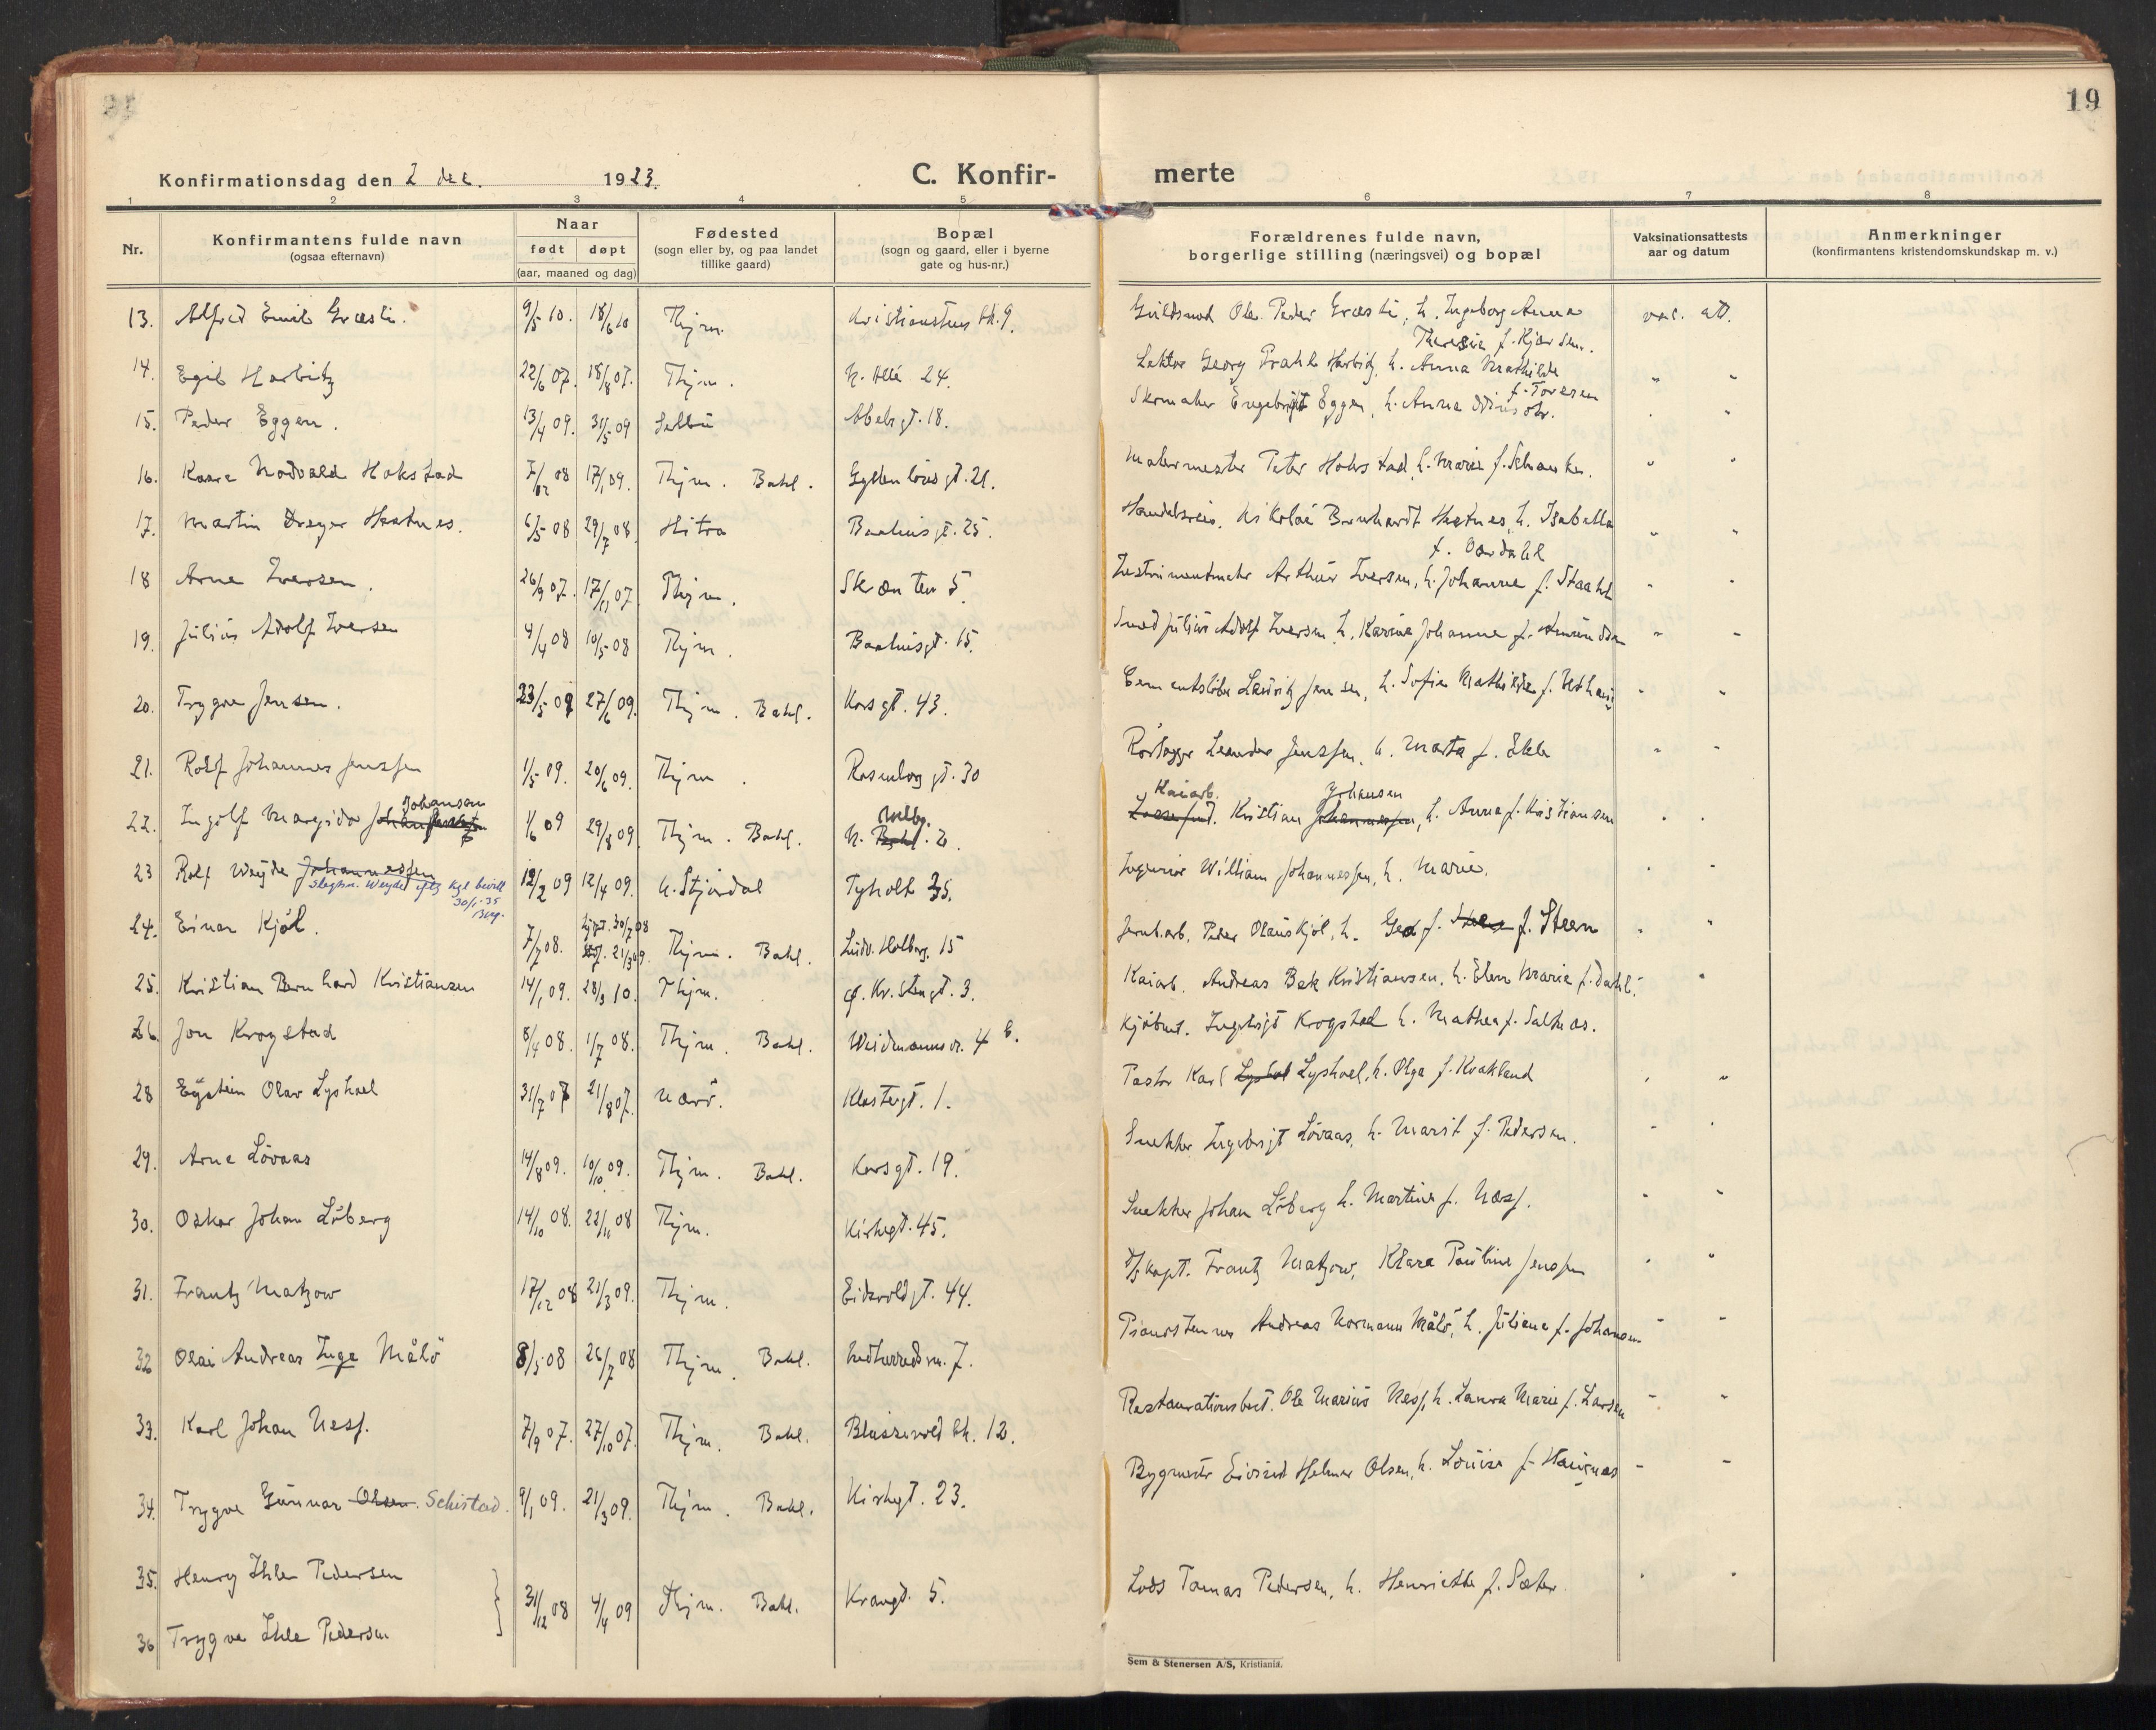 19
Konfirmationsdag den 2 dec. 1923.
C. Konfir- merte
1 2 3 4 5 6 7 8
Nr.
Konfirmantens fulde navn
(ogsaa efternavn)
Naar
født døpt
(aar, maaned og dag)
Fødested
(sogn eller by, og paa landet
tillike gaard)
Bopæl
(sogn og gaard, eller i byerne
gate og hus-nr.)
Forældrenes fulde navn,
borgerlige stilling (næringsvei) og bopæl
Vaksinationsattests
aar og datum
Anmerkninger
(konfirmantens kristendomskundskap m. v.)
13. Alfred Emil Græsli. 9/5 10. 18/6 10 Thjm. Kristianstens bk. 9. Ole Peder Græsli, h. Ingeborg Anna vac. att.
Theresie f. Kjær
14. Egil Harbitz 22/6 07. 18/8 07. Thjm. N. Allé 24. Lektor Georg Prahl Harbitz, h. Anna Mathilde " "
f. Toresen
15. Peder Eggen. 13/4 09. 31/5 09 Selbu Abels gt. 18. Skomaker Engebrigt Eggen, h. Anna " "
16. Kaare Hokstad 7/12 08 17/1 09. Thjm. Bakl. Gyldenløves gt. 21. Malermester Peter Hokstad, h. Marie f. " "
17. Martin Dreyer Hestnes. 6/5 08 29/7 08 Hitra Baahusgt. 25. Handelsreis. Nikolai Bernhardt Hestnes, h. Isabella " "
18 Arne Iversen. 26/9 07. 17/11 07. Thjm. Skrænten 5. Instrumentmaker Arthur Iversen, h. Johanne f. Staahl " "
19. Julius Adolf Iversen 4/4 08 10/5 08 Thjm. Baahusgt. 15. Smed Julius Adolf Iversen, h. Karine Johanne f. Amundsen " "
20. Trygve Jensen. 23/5 09 27/6 09. Thjm. Bakl. Korsgt. 43. Cementstøber Laurits Jensen, h. Sofie Mathilde f. " "
21. Rolf Johannes Jenssen 1/5 09. 20/6 09. Thjm. Rosenborg gt. 30 Rørlægger Leander Jenssen, h. Marta f. Ekle " "
Johansen Møllbg. Kaiarb. Johansen
22. Ingolf Margido 1/6 09 29/8 09. Thjm. Bakl. N. Bakl. 2. Kristian Johannessen, h. Anna f. Kristiansen " "
23 Rolf Weyde Johannessen 12/2 09 12/4 09. N. Stjørdal Tyholt 35. Ingeniør William Johannessen, h. Marie. " "
Slegtsn. Weydel kgl. bevill
30/1-35
24. Einar Kjøl. 7/7 08. hjdpt. 30/7 08 21/3 09. Thjm. Bakl. Ludv. Holberg. 15 Jernb.arb. Peder Olaus Kjøl, h. f. Steen " "
25. Kristian Bernhard Kristiansen 14/1 09. 28/3 10. Thjm. Ø. Kr.stengt. 3. Kaiarb. Andreas Bek Kristiansen, h. Elen Marie f. Dahl. " "
26 Jon Krogstad 8/4 08. 1/7 08. Thjm. Bakl. Weidemannsv. 4 b. Kjøbm. Ingebrigt Krogstad h. Mathea f. Saltnes.
28 Eystein Olav Lyshoel 31/7 07 21/8 07. Nærø. Klostergt. 1. Pastor Karl Lyshol Lyshoel, h. Olga f. Krakland " "
29. Arne Løvaas 14/8 09. 10/10 09. Thjm. Bakl. Korsgt. 19. Snekker Ingebrigt Løvaas, h. Marit f. Pedersen. " "
30. Oskar Johan Løberg 14/10 08. 22/11 08 Thjm. Kirkegt. 45. Snekker Johan Løberg h. Martine f. Næss. " "
31. Frantz Matzow 17/12 08 21/3 09. Thjm. Eidsvoldgt. 44. D/S kapt. Frantz Matzow, Klara Pauline Jenssen " "
32 Olai Andreas Inge Målø 8/5 08 26/7 08 Thjm. Bakl. Indherredsv. 7. Pianostemmer Andreas Normann Målø, h. Juliane f. Johansen " "
33. Karl Johan Ness. 7/9 07. 27/10 07. Thjm. Bakl. Blussevold bk. 12. Restaurationsbest. Ole Marius Ness, h. Laura Marie f. Larsen " "
34. Trygve Gunnar Olsen. Schistad. 9/1 09. 21/3 09. Thjm. Bakl. Kirkegt. 23. Bygmester Eivind Helmer Olsen, h. Louise f. " "
35. Henry Ihle Pedersen
31/12 08 4/4 09 Thjm. Bakl. Krangt. 5. Lods Tomas Pedersen, h. Henriette f. Sæter. " "
36 Trygve Ihle Pedersen
Sem & Stenersen A/S, Kristiania.